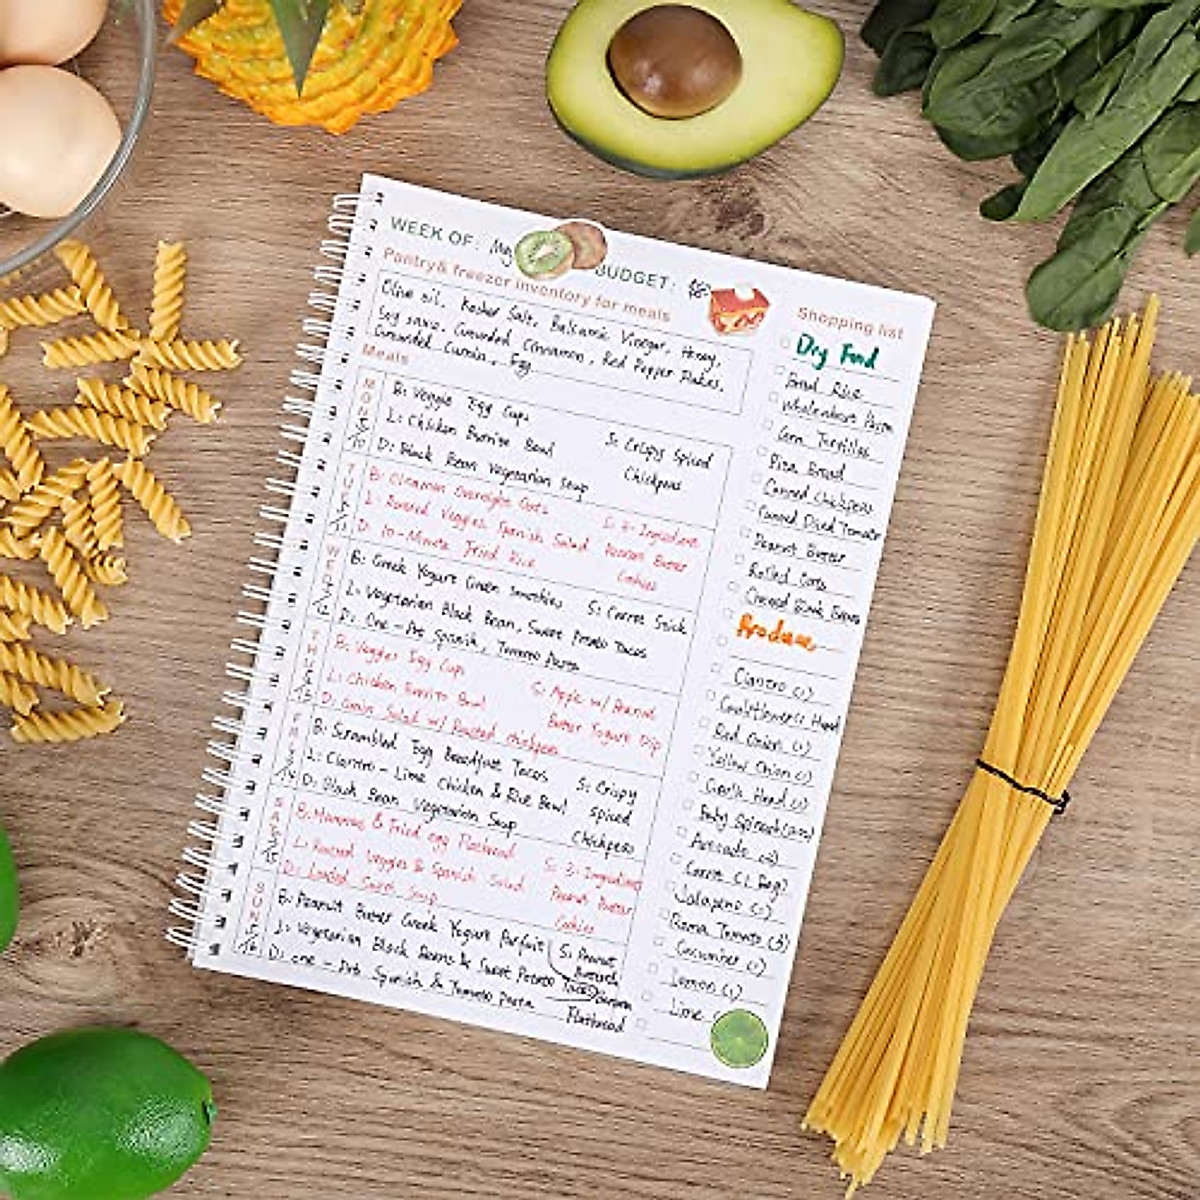 WEEK OF: May
BUDGET: $80
Pantry& freezer inventory for meals
Olive oil, Kosher Salt, Balsamic Vinegar, Honey,
Soy sauce, Grounded Cinnamon, Red Pepper Flakes,
Grounded Cumin, Egg
Meals
MON 5/10
B: Veggie Egg Cups
L: Chicken Burrito Bowl
D: Black Bean Vegetarian Soup
S: Crispy Spiced
Chickpeas
TUE 5/11
B: Cinnamon Overnight Oats
L: Roasted Veggies Spanish Salad
D: 10-Minute Fried Rice
S: 3-Ingredient
Peanut Butter
Cookies
WED 5/12
B: Greek Yogurt Green Smoothies
L: Vegetarian Black Bean, Sweet Potato Tacos
D: One-Pot Spanish, Tomato Pasta
S: Carrot Stick
THU 5/13
B: Veggies Egg Cups
L: Chicken Burrito Bowl
D: Grain Salad w/ Roasted chickpeas
S: Apple w/ Peanut
Butter Yogurt Dip
FRI 5/14
B: Scrambled Egg Breadfast Tacos
L: Cilantro-Lime Chicken & Rice Bowl
D: Black Bean Vegetarian Soup
S: Crispy
Spiced
Chickpeas
SAT 5/15
B: Hummus & Fried egg Flatbread
L: Roasted Veggies & Spanish Salad
D: Loaded Soup
S: 3-Ingredient
Peanut Butter
Cookies
SUN 5/16
B: Peanut Butter Greek Yogurt Parfait
L: Vegetarian Black Beans & Sweet Potato Tacos
D: one-Pot Spanish & Tomato Pasta
S: Peanut
Butter
Banana
Flatbread
Shopping list
Dry Food
Rice
Wholewheat Pasta
Corn Tortillas
Pita Bread
Canned Chickpeas
Canned Dried Tomato
Peanut Butter
Rolled Oats
Canned Black Beans
Produce
Cilantro (1)
Cauliflower(1 Head)
Red Onion (1)
Yellow Onion (1)
Garlic Head (1)
Baby Spinach
Avocado
Carrot (1 Bag)
Jalapeno
Roma Tomato (3)
Cucumber (1)
Lemon (1)
Lime